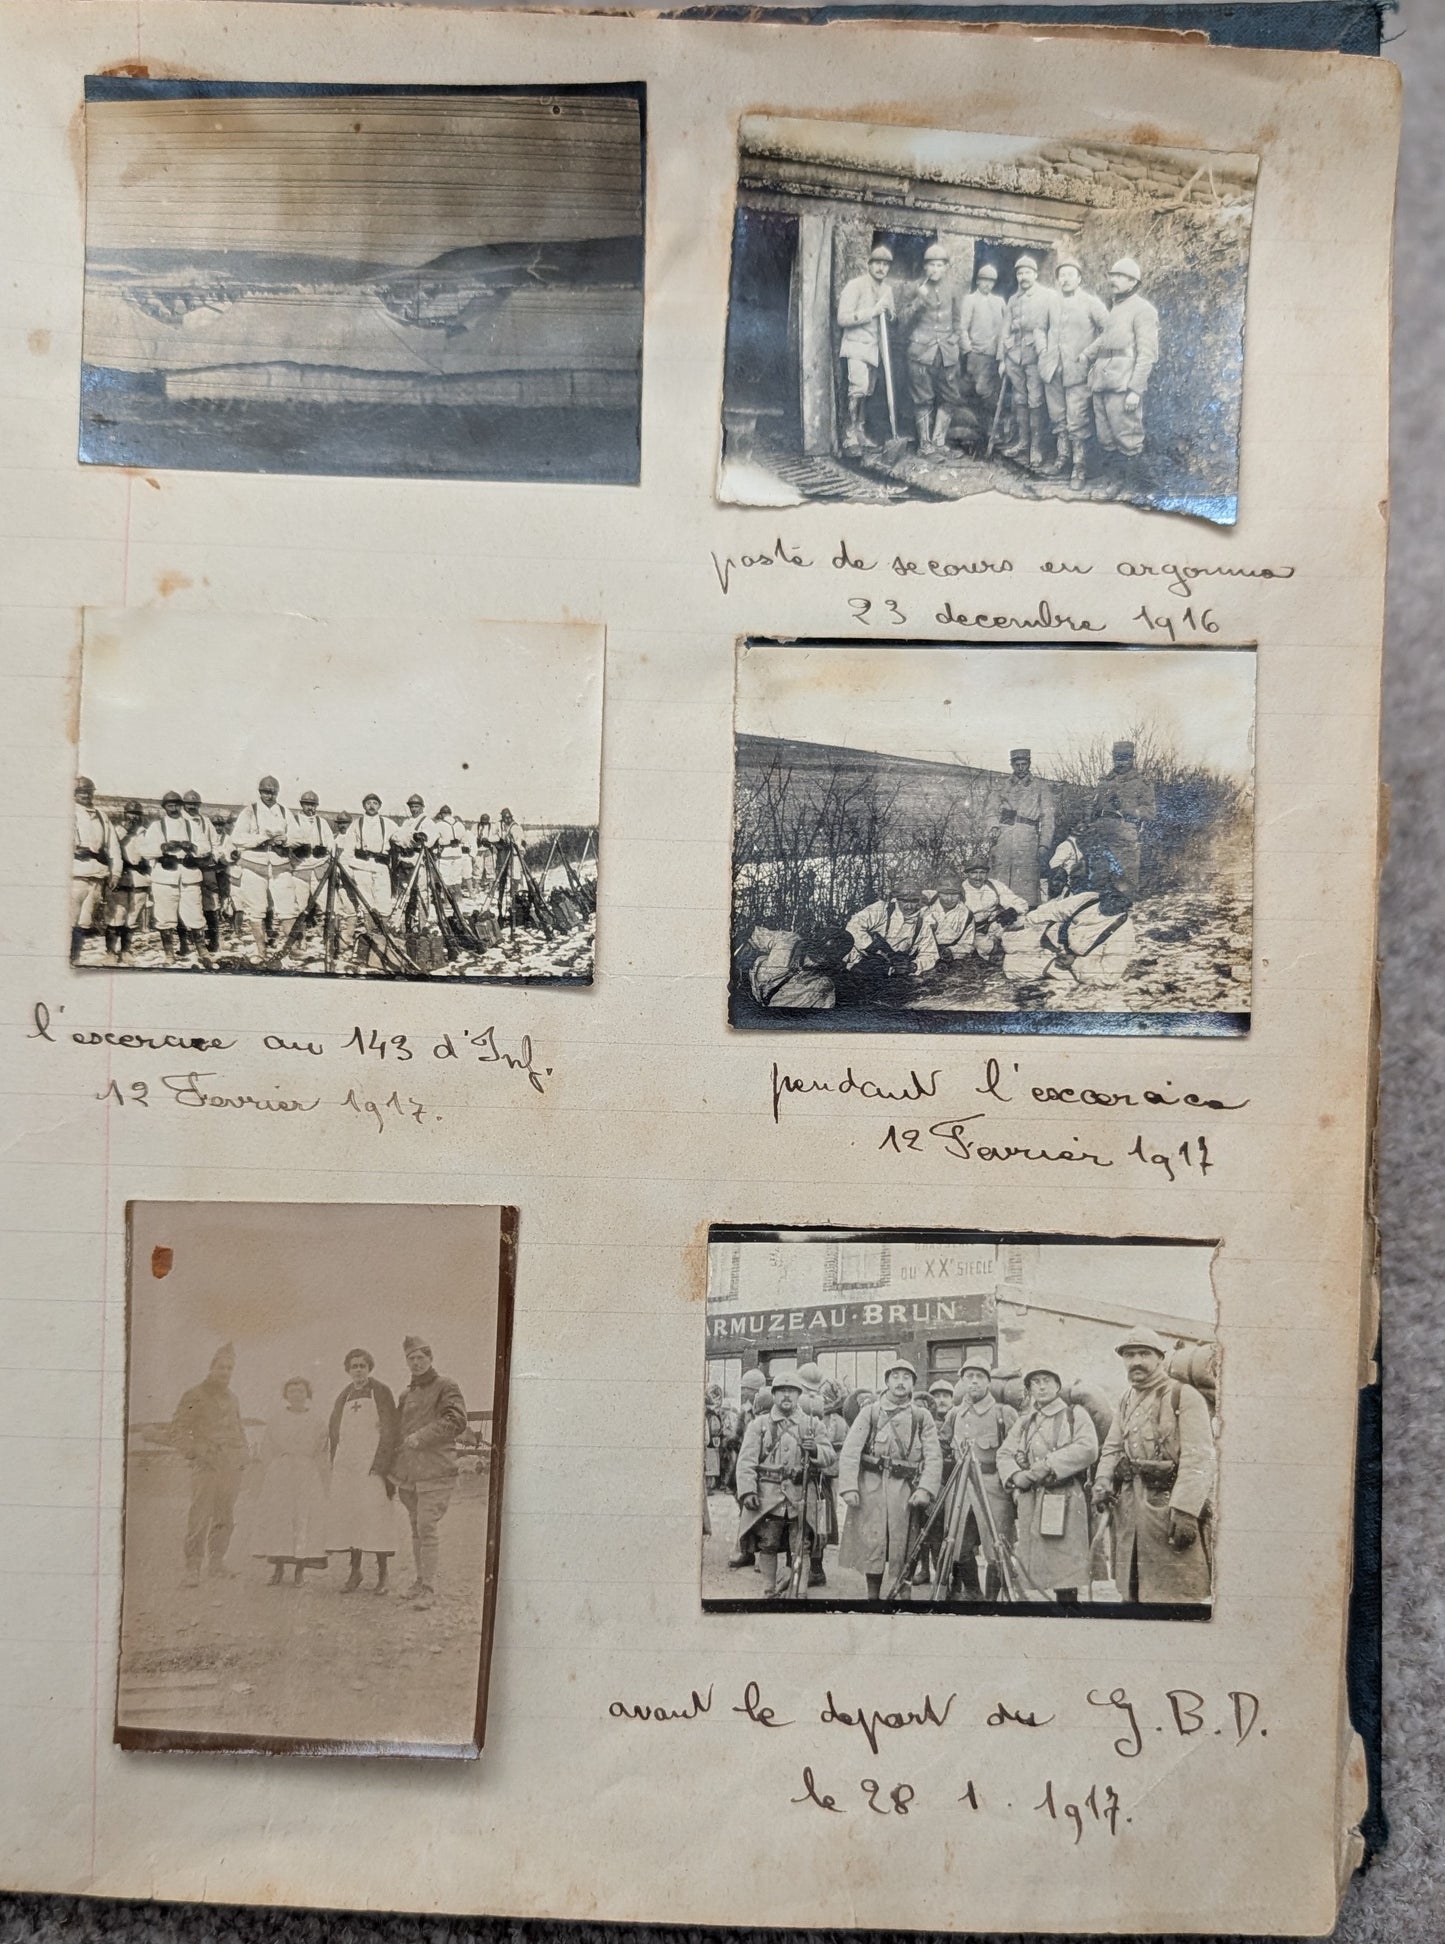 poste de secours en argonne
23 decembre 1916
l'exercice au 143 d'Inf.
12 Fevrier 1917.
pendant l'exercice
12 Fevrier 1917
DU XXe SIECLE
ARMUZEAU·BRUN
avant le depart du G.B.D.
le 28 1. 1917.